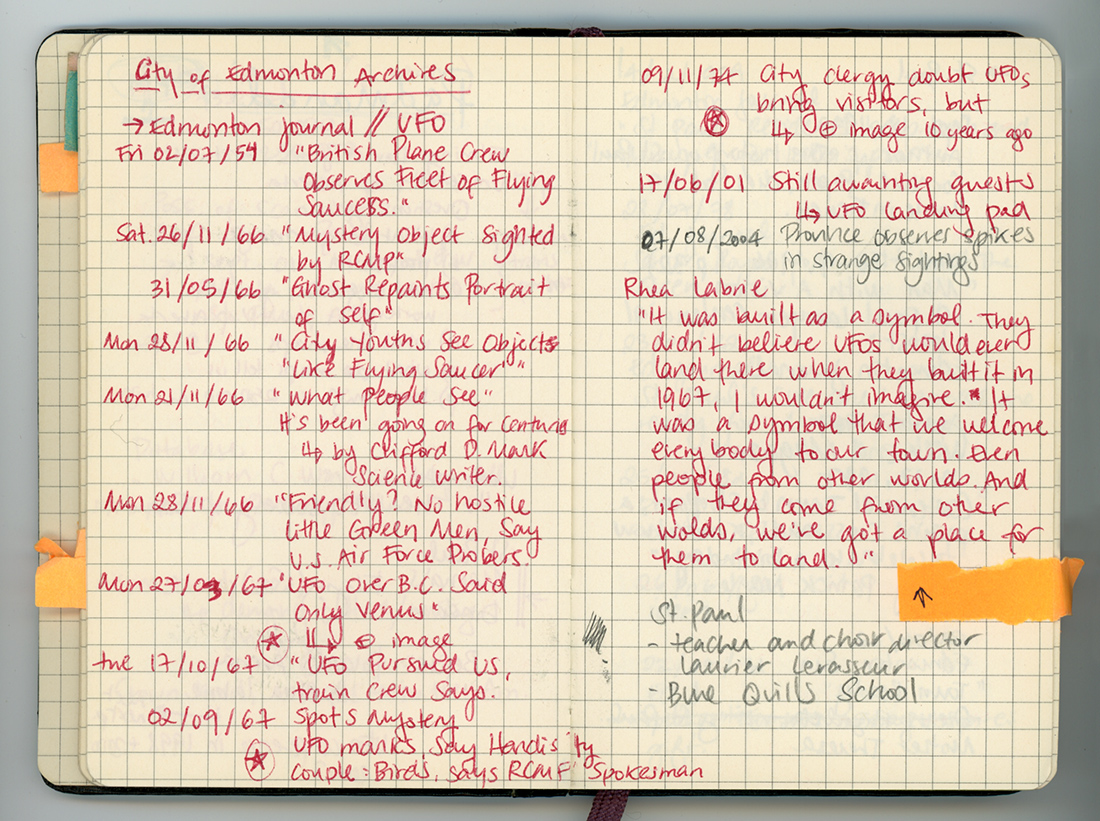 City of Edmonton Archives
→ Edmonton journal // UFO
Fri 02/07/54 "British Plane Crew
Observes Fleet of Flying
Saucers."
Sat. 26/11/66 "Mystery Object Sighted
by RCMP"
31/05/66 "Ghost Repaints Portrait
of Self"
Mon 28/11/66 "City Youths See Objects
"Like Flying Saucer""
Mon 21/11/66 "What People See"
It's been going on for centuries
↳ by Clifford D. Mark
Science writer.
Mon 28/11/66 "Friendly? No hostile
little Green Men, Say
U.S. Air Force Probers.
Mon 27/03/67 "UFO Over B.C. Said
Only Venus"
↳ ⊕ image
tue 17/10/67 "UFO Pursued Us,
train Crew Says.
02/09/67 Spots Mystery
UFO marks Say Handis ty
couple: Birds, says RCMP Spokesman
09/11/74 City clergy doubt UFOs
bring visitors, but
↳ ⊕ image 10 years ago
17/06/01 Still awaiting guests
↳ UFO landing pad
07/08/2004 Province observes spikes
in strange sightings
Rhea Labrie
"It was built as a symbol. They
didn't believe UFOs would ever
land there when they built it in
1967, I wouldn't imagine." It
was a symbol that we welcome
everybody to our town. Even
people from other worlds. And
if they come from other
wolds, we've got a place for
them to land."
↑
St. Paul
- teacher and choir director
Laurier Levasseur
- Blue Quills School